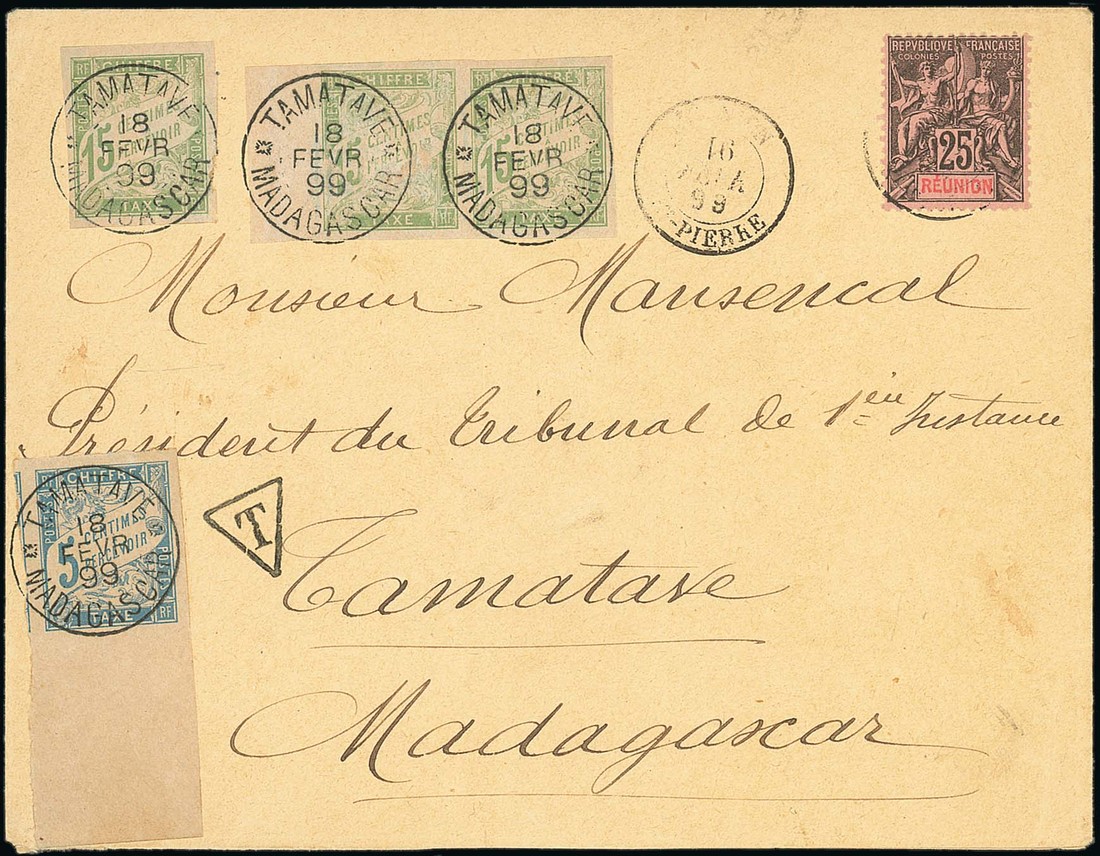 CHIFFRE
15 CENTIMES
À PERCEVOIR
TAXE
RF
TAMATAVE
18
FEVR
99
MADAGASCAR
CHIFFRE
CENTIMES
TAXE
RF
TAMATAVE
18
FEVR
99
MADAGASCAR
CHIFFRE
15 CENTIMES
TAXE
RF
TAMATAVE
18
FEVR
99
MADAGASCAR
16
99
PIERRE
REPVBLIQVE FRANÇAISE
COLONIES POSTES
25
RÉUNION
Monsieur Mansencal
Président du Tribunal de 1ère Instance
CHIFFRE
5 CENTIMES
À PERCEVOIR
TAXE
RF
TAMATAVE
18
FEVR
99
MADAGASCAR
T
Tamatave
Madagascar